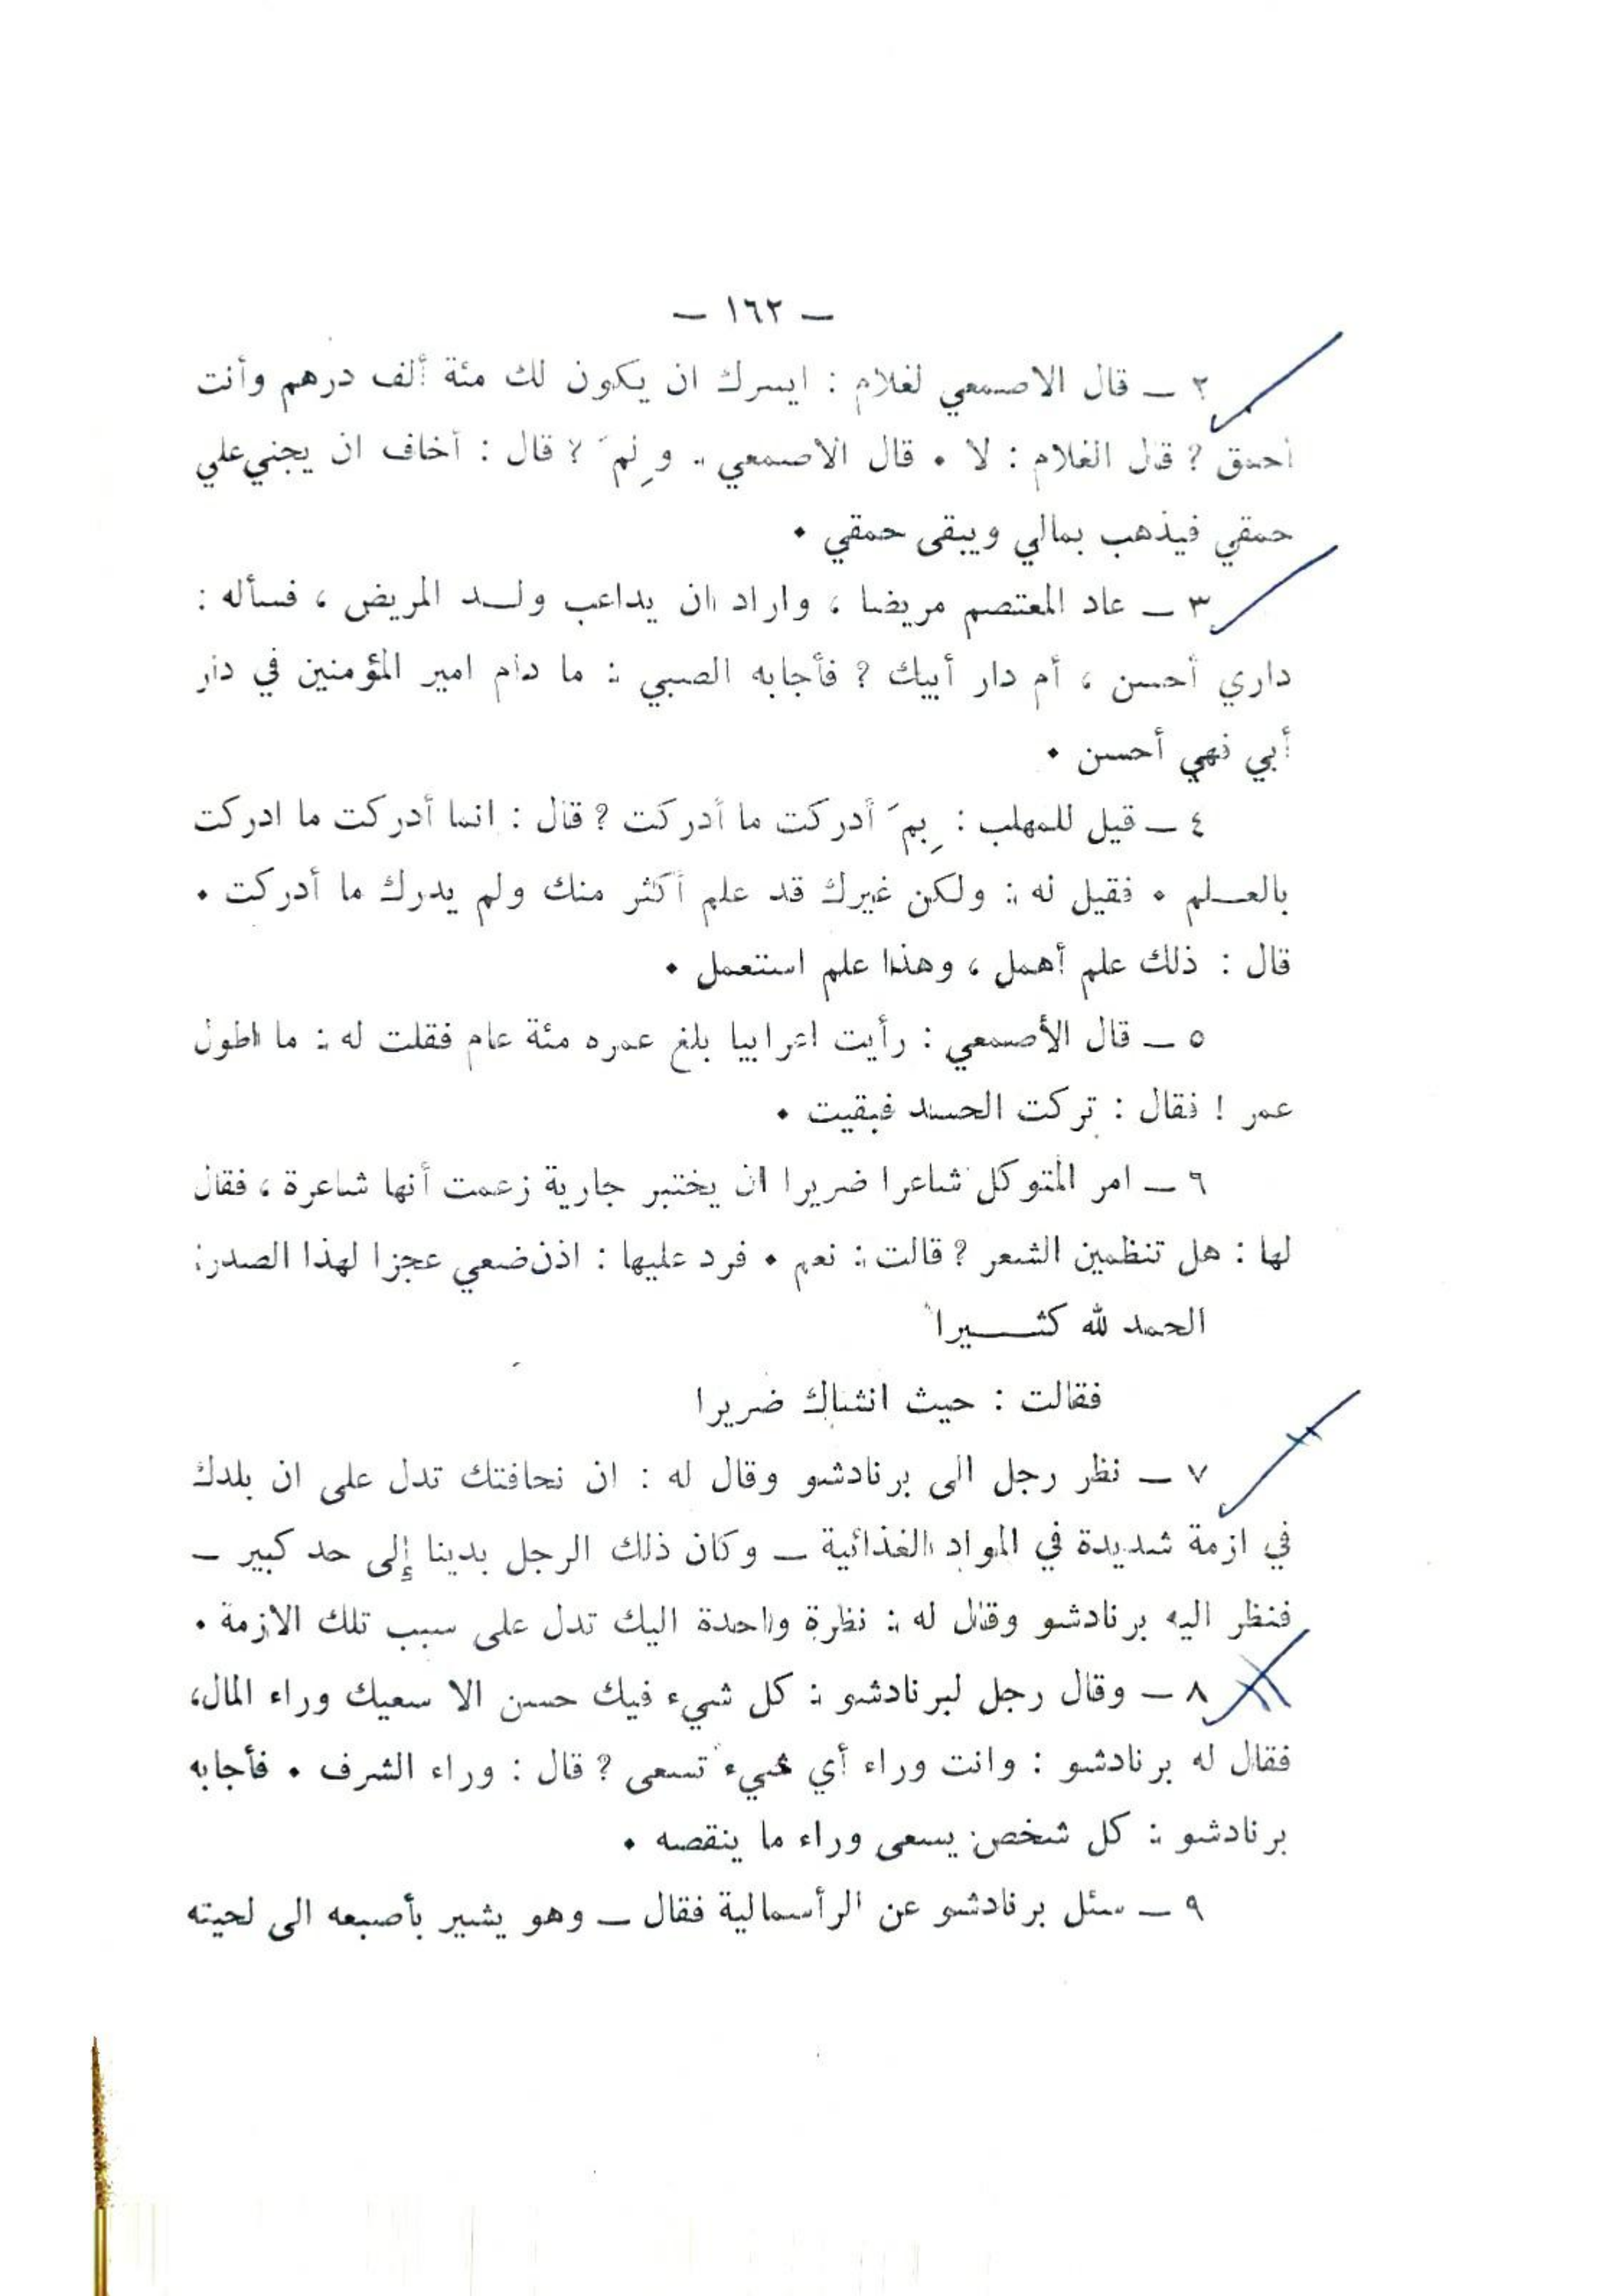 — ١٦٢ —
٢ — قال الاصمعي لغلام : ايسرك ان يكون لك مئة ألف درهم وأنت
احمق ? قال الغلام : لا . قال الاصمعي : ولِمَ ? قال : أخاف ان يجني علي
حمقي فيذهب بمالي ويبقى حمقي .
٣ — عاد المعتصم مريضا ، واراد ان يداعب ولد المريض ، فسأله :
داري أحسن ، أم دار أبيك ? فأجابه الصبي : ما دام امير المؤمنين في دار
أبي فهي أحسن .
٤ — قيل للمهلب : بِمَ أدركت ما أدركت ? قال : انما أدركت ما ادركت
بالعلم . فقيل له : ولكن غيرك قد علم أكثر منك ولم يدرك ما أدركت .
قال : ذلك علم أهمل ، وهذا علم استعمل .
٥ — قال الأصمعي : رأيت اعرابيا بلغ عمره مئة عام فقلت له : ما اطول
عمر ! فقال : تركت الحسد فبقيت .
٦ — امر المتوكل شاعرا ضريرا ان يختبر جارية زعمت أنها شاعرة ، فقال
لها : هل تنظمين الشعر ? قالت : نعم . فرد عليها : اذن ضعي عجزا لهذا الصدر :
الحمد لله كثيراً
فقالت : حيث انشاك ضريرا
٧ — نظر رجل الى برنادشو وقال له : ان نحافتك تدل على ان بلدك
في ازمة شديدة في المواد الغذائية — وكان ذلك الرجل بدينا إلى حد كبير —
فنظر اليه برنادشو وقال له : نظرة واحدة اليك تدل على سبب تلك الازمة .
٨ — وقال رجل لبرنادشو : كل شيء فيك حسن الا سعيك وراء المال ،
فقال له برنادشو : وانت وراء أي شيء تسعى ? قال : وراء الشرف . فأجابه
برنادشو : كل شخص يسعى وراء ما ينقصه .
٩ — سئل برنادشو عن الرأسمالية فقال — وهو يشير بأصبعه الى لحيته